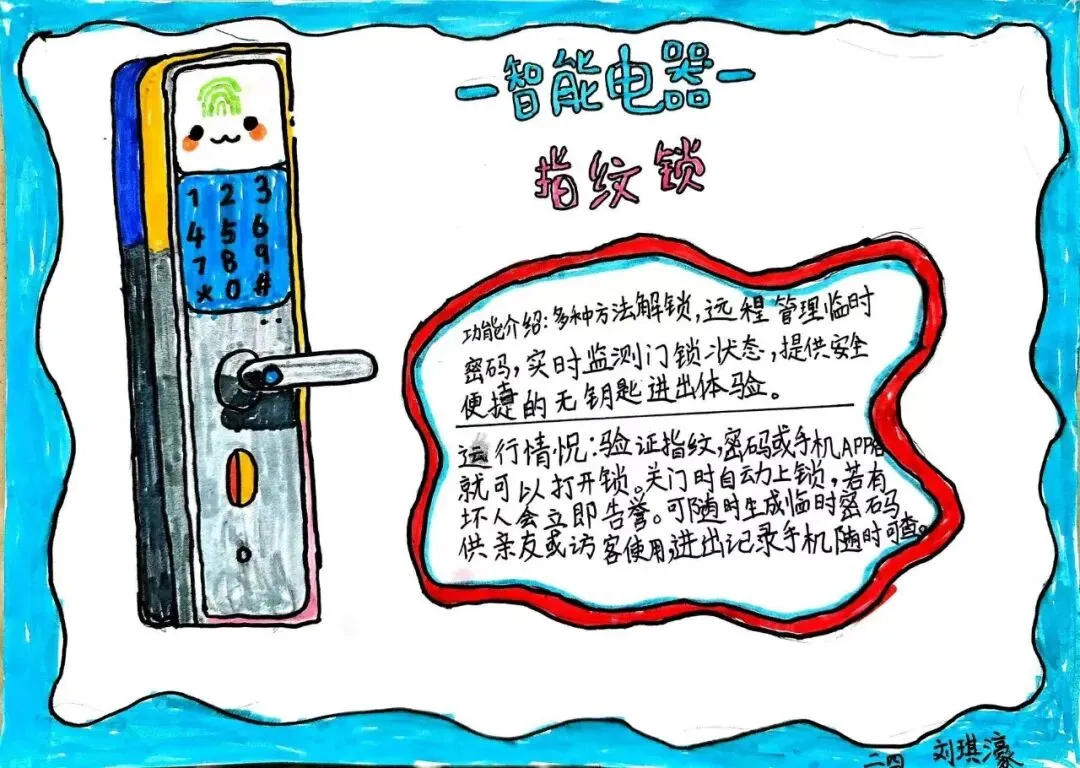 一智能电器一
指纹锁
1 2 3
4 5 6
7 8 9
* 0 #
功能介绍:多种方法解锁,远程管理临时
密码,实时监测门锁状态,提供安全
便捷的无钥匙进出体验。
运行情况:验证指纹,密码或手机APP后
就可以打开锁。关门时自动上锁,若有
坏人会立即告警。可随时生成临时密码
供亲友或访客使用,进出记录手机随时可查。
二四 刘琪濠